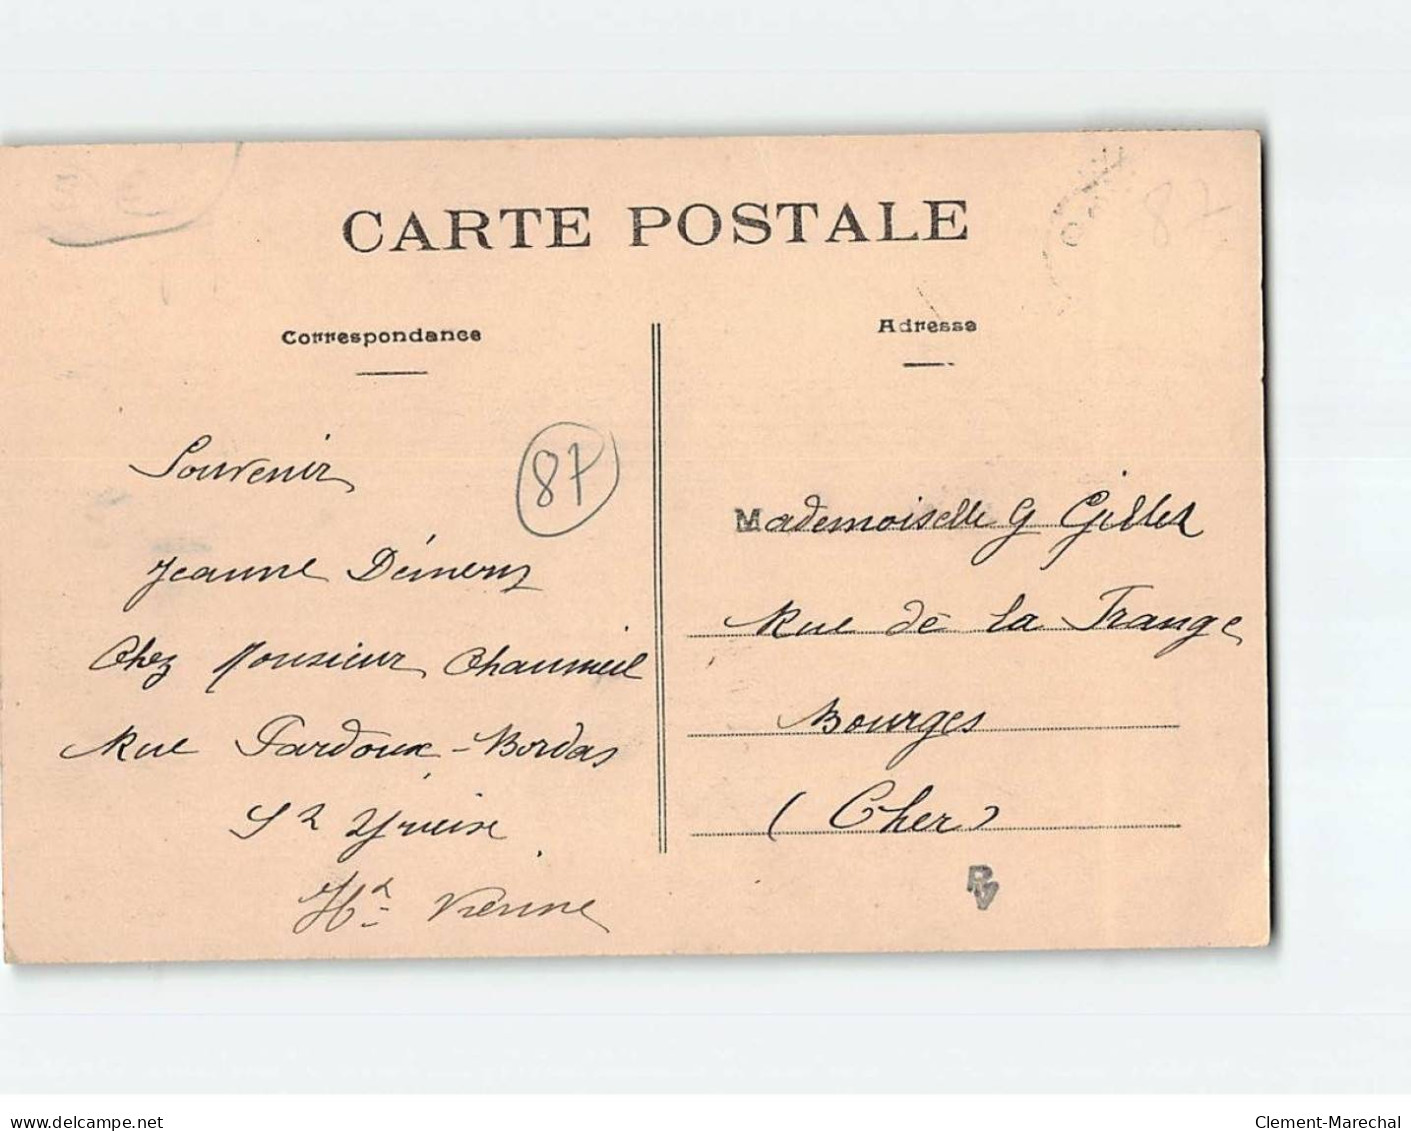 CARTE POSTALE
82
Correspondance
Adresse
87
Souvenir
Jeanne
Chez Monsieur Chaumeil
Rue Pardoux-Bordas
St Yrieix
Hte Vienne
Mademoiselle G Gillet
Rue de la Frange
Bourges
(Cher)
RV
www.delcampe.net
Clement-Marechal